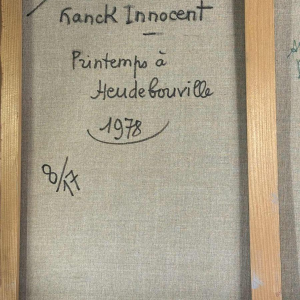 Franck Innocent
Printemps à
Heudebouville
1978
8/17